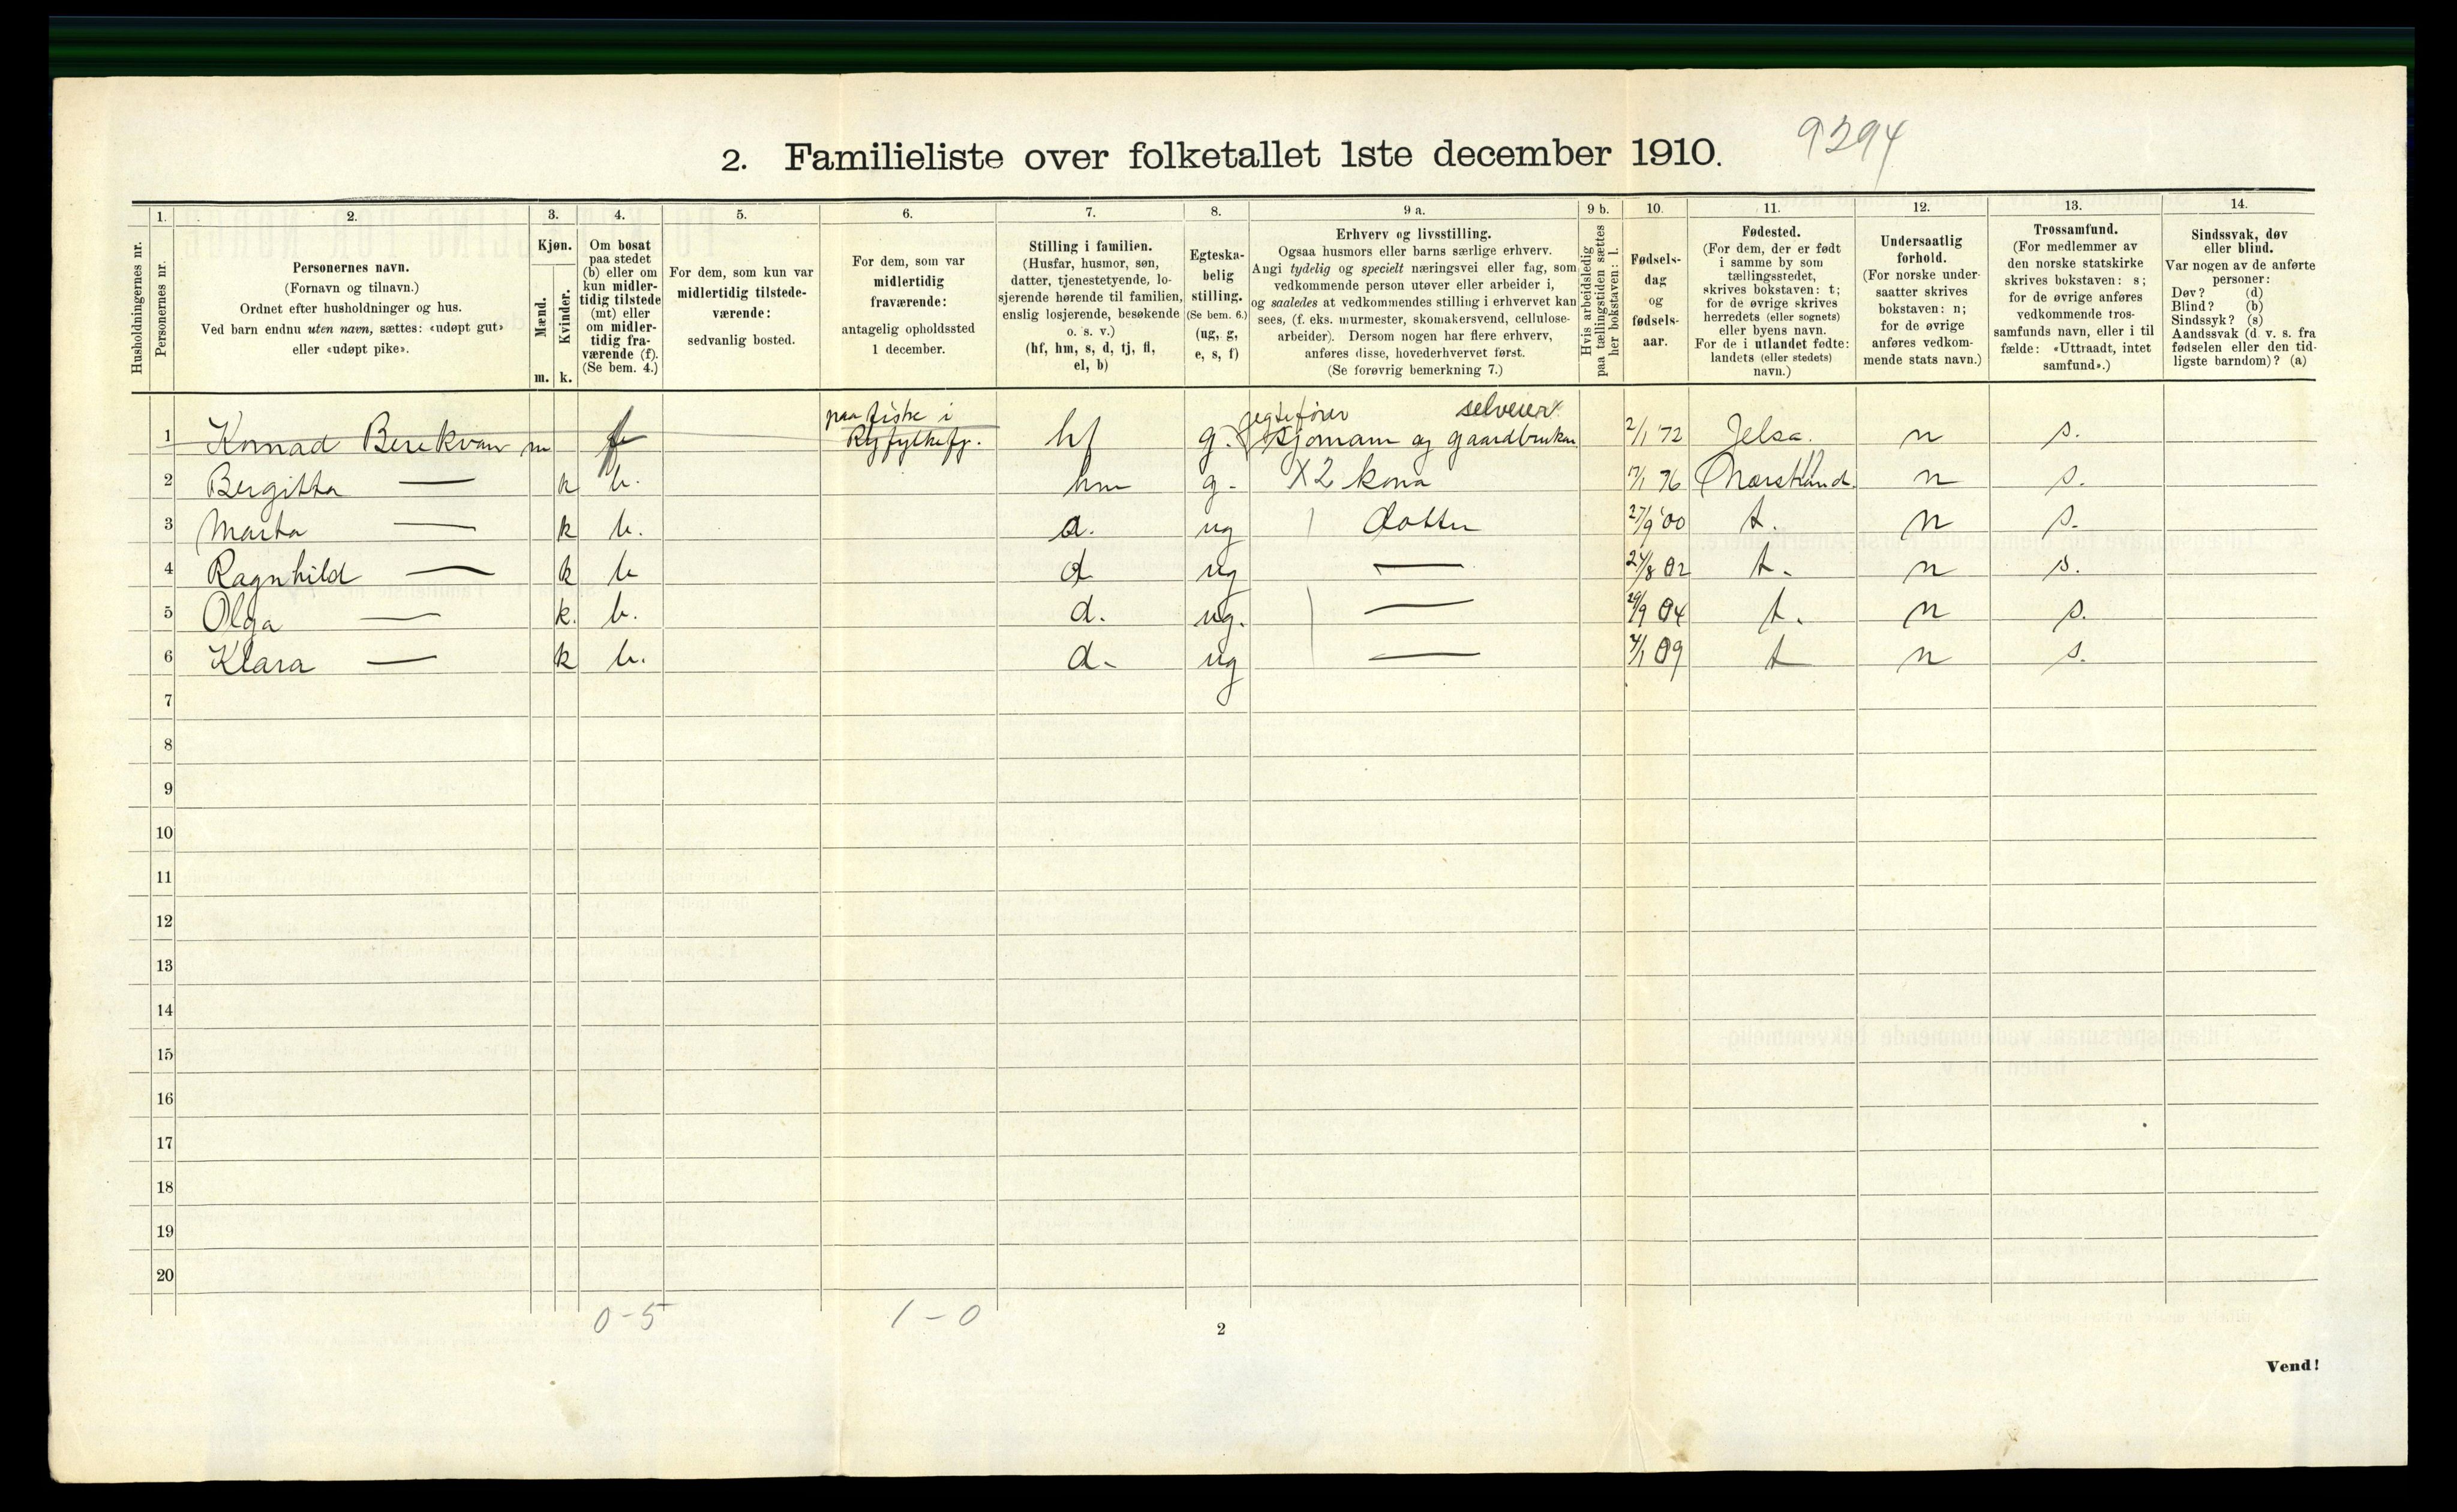 9294
2. Familieliste over folketallet 1ste december 1910.
Husholdningernes nr.
1.
Personernes nr.
2.
Personernes navn.
(Fornavn og tilnavn.)
Ordnet efter husholdninger og hus.
Ved barn endnu uten navn, sættes: «udøpt gut»
eller «udøpt pike».
3.
Kjøn.
Mænd.
Kvinder.
m. k.
4.
Om bosat
paa stedet
(b) eller om
kun midler-
tidig tilstede
(mt) eller
om midler-
tidig fra-
værende (f).
(Se bem. 4.)
5.
For dem, som kun var
midlertidig tilstede-
værende:
sedvanlig bosted.
6.
For dem, som var
midlertidig
fraværende:
antagelig opholdssted
1 december.
7.
Stilling i familien.
(Husfar, husmor, søn,
datter, tjenestetyende, lo-
sjerende hørende til familien,
enslig losjerende, besøkende
o. s. v.)
(hf, hm, s, d, tj, fl,
el, b)
8.
Egteska-
belig
stilling.
(Se bem. 6.)
(ug, g,
e, s, f)
9 a.
Erhverv og livsstilling.
Ogsaa husmors eller barns særlige erhverv.
Angi tydelig og specielt næringsvei eller fag, som
vedkommende person utøver eller arbeider i,
og saaledes at vedkommendes stilling i erhvervet kan
sees, (f. eks. murmester, skomakersvend, cellulose-
arbeider). Dersom nogen har flere erhverv,
anføres disse, hovederhvervet først.
(Se forøvrig bemerkning 7.)
9 b.
Hvis arbeidsledig
paa tællingstiden sættes
her bokstaven: l.
10.
Fødsels-
dag
og
fødsels-
aar.
11.
Fødested.
(For dem, der er født
i samme by som
tællingsstedet,
skrives bokstaven: t;
for de øvrige skrives
herredets (eller sognets)
eller byens navn.
For de i utlandet fødte:
landets (eller stedets)
navn.)
12.
Undersaatlig
forhold.
(For norske under-
saatter skrives
bokstaven: n;
for de øvrige
anføres vedkom-
mende stats navn.)
13.
Trossamfund.
(For medlemmer av
den norske statskirke
skrives bokstaven: s;
for de øvrige anføres
vedkommende tros-
samfunds navn, eller i til-
fælde: «Uttraadt, intet
samfund».)
14.
Sindssvak, døv
eller blind.
Var nogen av de anførte
personer:
Døv? (d)
Blind? (b)
Sindssyk? (s)
Aandssvak (d. v. s. fra
fødselen eller den tid-
ligste barndom)? (a)
paa fiske i jegtefører selveier
1 Konrad Berekvam m f Ryfylkefj. hf g. Sjømann og gaardbruker 2/1 72 Jelsa. n s.
2 Bergitta — k b. hm g. X2 kona 17/1 76 Nærstrand. n s.
3 Marta — k b. d. ug Datter 27/9 00 t. n s.
4 Ragnhild — k b d ug — 24/8 02 t. n s.
5 Olga — k. b. d. ug. — 29/9 04 t. n s.
6 Klara — k b. d. ug — 4/1 09 t n s.
7
8
9
10
11
12
13
14
15
16
17
18
19
20
0-5 1-0
2
Vend!